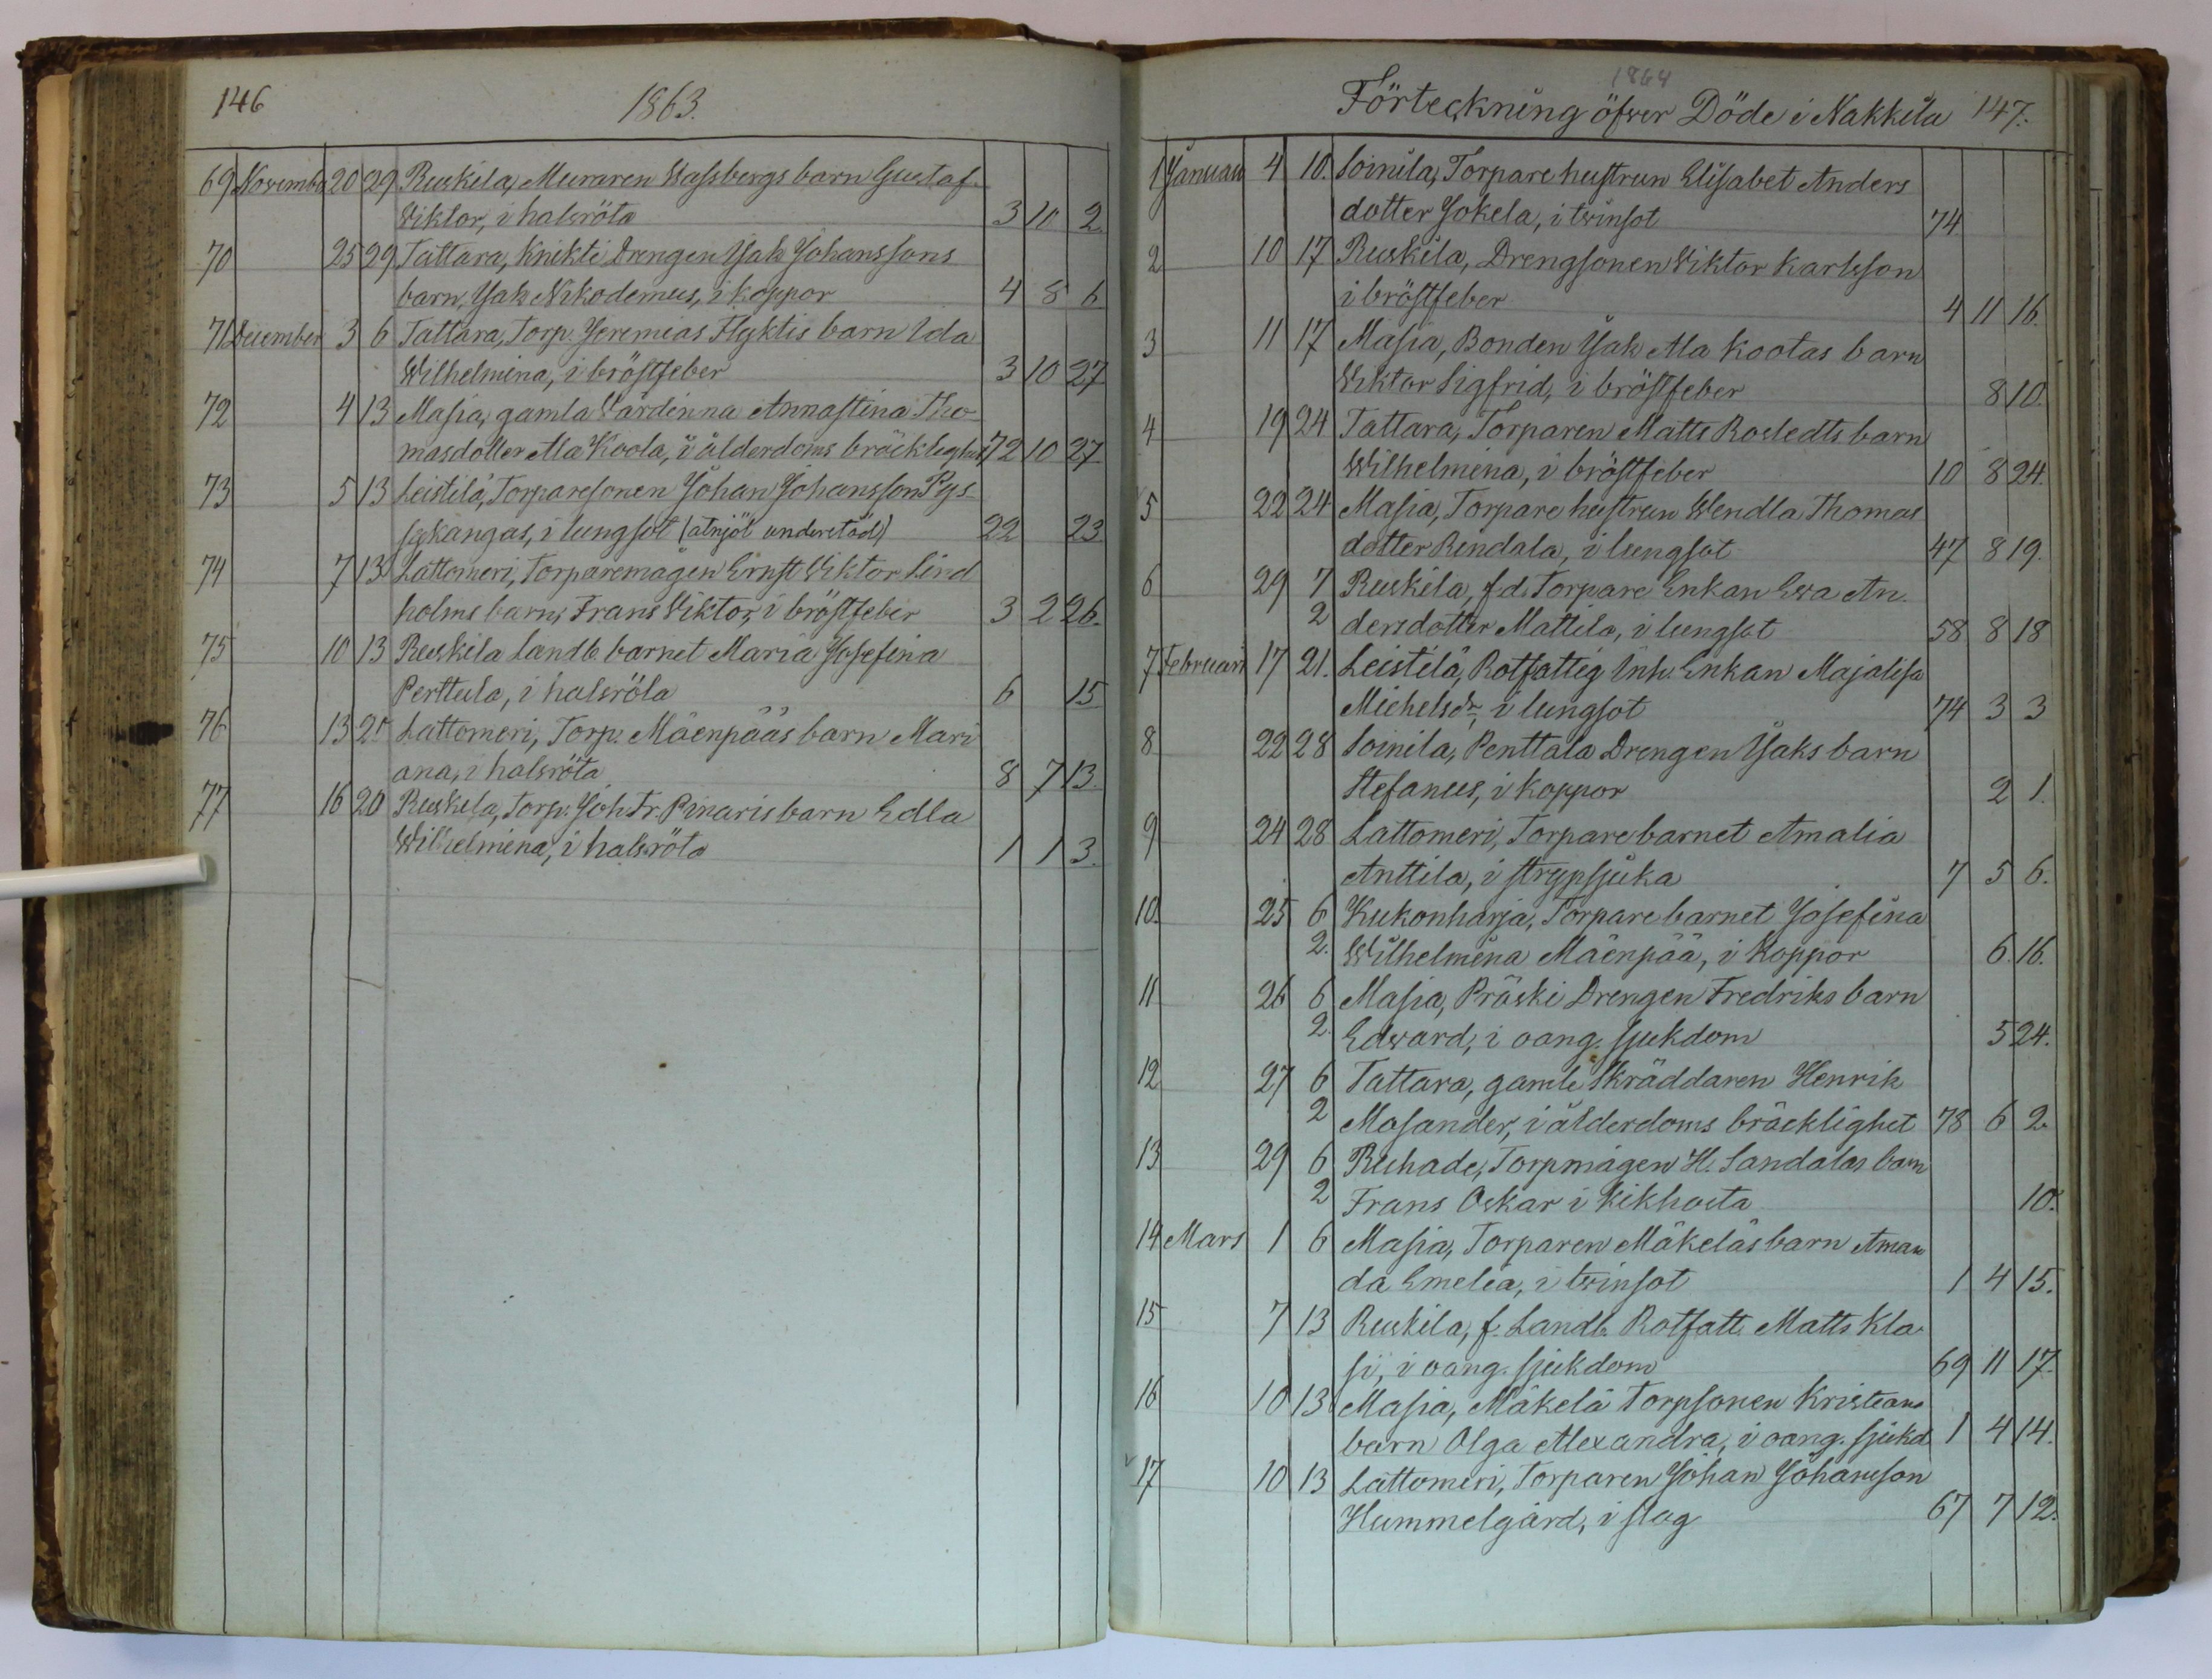 146
1863.
69 November 20 29 Ruskila, Muraren Wassbergs barn Gustaf
Wiktor, i halsröta 3 10 2.
70 25 29 Tattara, Knikti Drengen Isak Johanssons
barn, Isak Nikodemus, i koppor 4 8 6.
71 December 3 6 Tattara, Torp. Jeremias Flyktis barn Ida
Wilhelmina, i bröstfeber 3 10 27
72 4 13 Masia, gamla Wärdinna Annastina Tho-
masdotter Ala Koota, i ålderdoms bräcklighet 72 10 27
73 5 13 Leistilä, Torparesonen Johan Johansson Pys-
sykangas, i lungsot (atnjöt understöd) 22 23
74 7 13 Lattomeri, Torparemågen Ernst Wiktor Lind
holms barn, Frans Wiktor, i bröstfeber 3 2 26.
75 10 13 Ruskila Landb. barnet Maria Josefina
Perttula, i halsröta 6 15
76 13 Lattomeri, Torp. Mäenpääs barn Mari
ana, i halsröta 8 7 13.
77 16 20 Ruskila, Torp. Joh. Fr. Pinaris barn Edla
Wilhelmina, i halsröta 1 1 3.
1864
Förteckning öfver Döde i Nakkila 147.
1 Januari 4 10. Soinila, Torpare hustrun Elisabet Anders
dotter Jokela, i twinsot 74
2 10 17 Ruskila, Drengsonen Wiktor Karlsson
i bröstfeber 4 11 16.
3 11 17 Masia, Bonden Isak Ala Kootas barn
Wiktor Sigfrid, i bröstfeber 8 10.
4 19 24 Tattara, Torparen Matts Rostedts barn
Wilhelmina, i bröstfeber 10 8 24.
5 22 24 Masia, Torpare hustrun Wendla Thomas
dotter Rindala, i lungsot 47 8 19.
6 29 7 Ruskila, f.d. Torpare Enkan Ewa An
2 dersdotter Mattila, i lungsot 58 8 18
7 Februari 17 21. Leistilä, Rotfattig Inh. Enkan Majalisa
Michelsdr, i lungsot 74 3 3
8 22 28 Soinila, Penttala Drengen Isaks barn
Stefanus, i koppor 2 1.
9 24 28 Lattomeri, Torparebarnet Amalia
Anttila, i strypsjuka 7 5 6.
10. 25 6 Kukonharja, Torpare barnet Josefina
2. Wilhelmina Mäenpää, i Koppor 6. 16.
11 26 6 Masia, Präski Drengen Fredriks barn
2. Edvard, i oang. sjukdom 5 24.
12 27 6 Tattara, gamle Skräddaren Henrik
2 Masander, i ålderdoms bräcklighet 78 6 2
13 29 6 Ruhade, Torpmågen H. Sandalas barn
2 Frans Oskar i Kikhosta 10.
14 Mars 1 6 Masia, Torparen Mäkeläs barn Aman
da Emelia, i twinsot 1 4 15.
15 7 13 Ruskila, f. Landb. Rotfatt. Matts Kla
si, i oang. sjukdom 69 11 17.
16 10 13 Masia, Mäkelä Torpsonen Kristians
barn Olga Alexandra, i oang. sjukd. 1 4 14.
17 10 13 Lattomeri, Torparen Johan Johansson
Hummelgård, i slag 67 7 12.